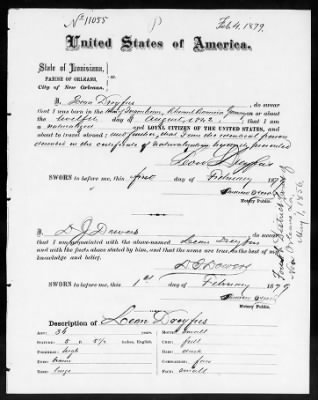 No 11055
Feb 4, 1879.
United States of America.
State of Louisiana,
PARISH OF ORLEANS,
City of New Orleans.
I, Leon Dreyfus, do swear
that I was born in the
on
the twelfth day of August, 1842, that I am
a naturalized and LOYAL CITIZEN OF THE UNITED STATES, and
about to travel abroad; and further, that I am the identical person
described in the certificate of naturalization herewith presented
Leon Dreyfus
SWORN to before me, this first day of February 1879
Notary Public.
Fourth District Court of
New Orleans La,
May 1, 1856
I, D. J. Dowers do swear
that I am acquainted with the above-named Leon Dreyfus
and with the facts above stated by him, and that the same are true, to the best of my
knowledge and belief.
SWORN to before me, this 1st day of February 1879
Notary Public.
Description of Leon Dreyfus
AGE: 36
MOUTH: small
STATURE: 5 ft. 5 1/2 inches, English.
CHIN: full
FOREHEAD: high
HAIR: dark
EYES:
COMPLEXION: fair
NOSE: large
FACE: small